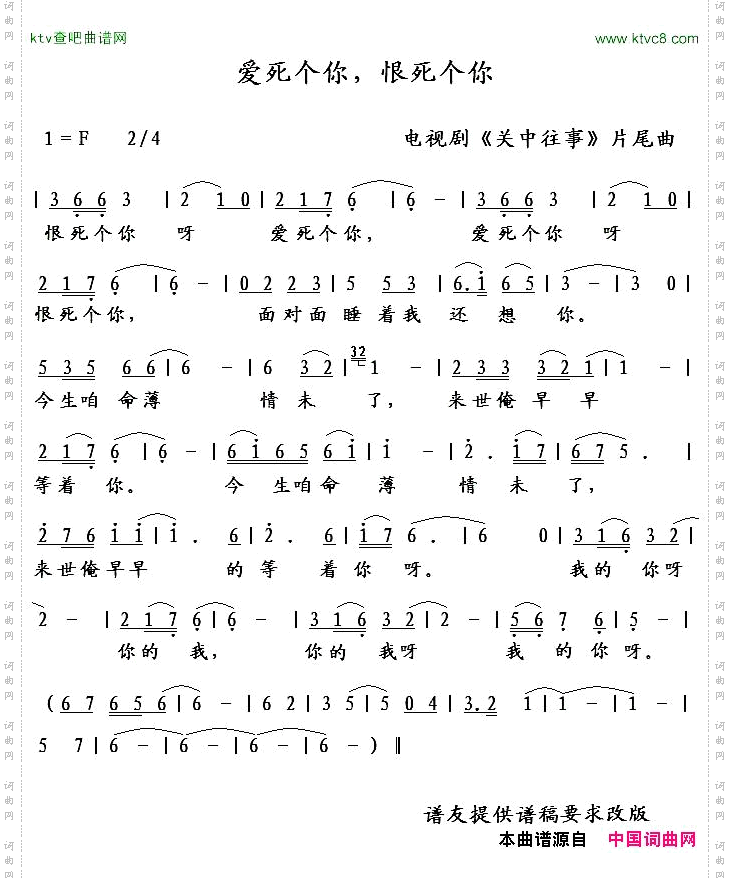 ktv查吧曲谱网 www.ktvc8.com
爱死个你，恨死个你
1=F 2/4 电视剧《关中往事》片尾曲
| 3 6 6 3 | 2 1 0 | 2 1 7 6 | 6 - | 3 6 6 3 | 2 1 0 |
恨死个你 呀 爱死个你， 爱死个你 呀
2 1 7 6 | 6 - | 0 2 2 3 | 5 5 3 | 6. i 6 5 | 3 - | 3 0 |
恨死个你， 面对面 睡着我 还 想 你。
5 3 5 6 6 | 6 - | 6 3 2 | 32 1 - | 2 3 3 3 2 1 | 1 - |
今生咱 命薄 情未 了， 来世俺早早
2 1 7 6 | 6 - | 6 i 6 5 6 i | i - | 2 . i 7 | 6 7 5 . |
等着 你。 今 生咱命 薄 情 未 了，
2 7 6 i i | i . 6 | 2 . 6 | i 7 6 . | 6 0 | 3 1 6 3 2 |
来世俺早早 的等 着你 呀。 我的 你呀
2 - | 2 1 7 6 | 6 - | 3 1 6 3 2 | 2 - | 5 6 7 6 | 5 - |
你的 我， 你的 我呀 我 的你呀。
( 6 7 6 5 6 | 6 - | 6 2 | 3 5 | 5 0 4 | 3. 2 1 | 1 - | 1 - |
5 7 | 6 - | 6 - | 6 - | 6 - ) ‖
谱友提供谱稿要求改版
本曲谱源自 中国词曲网
词曲网